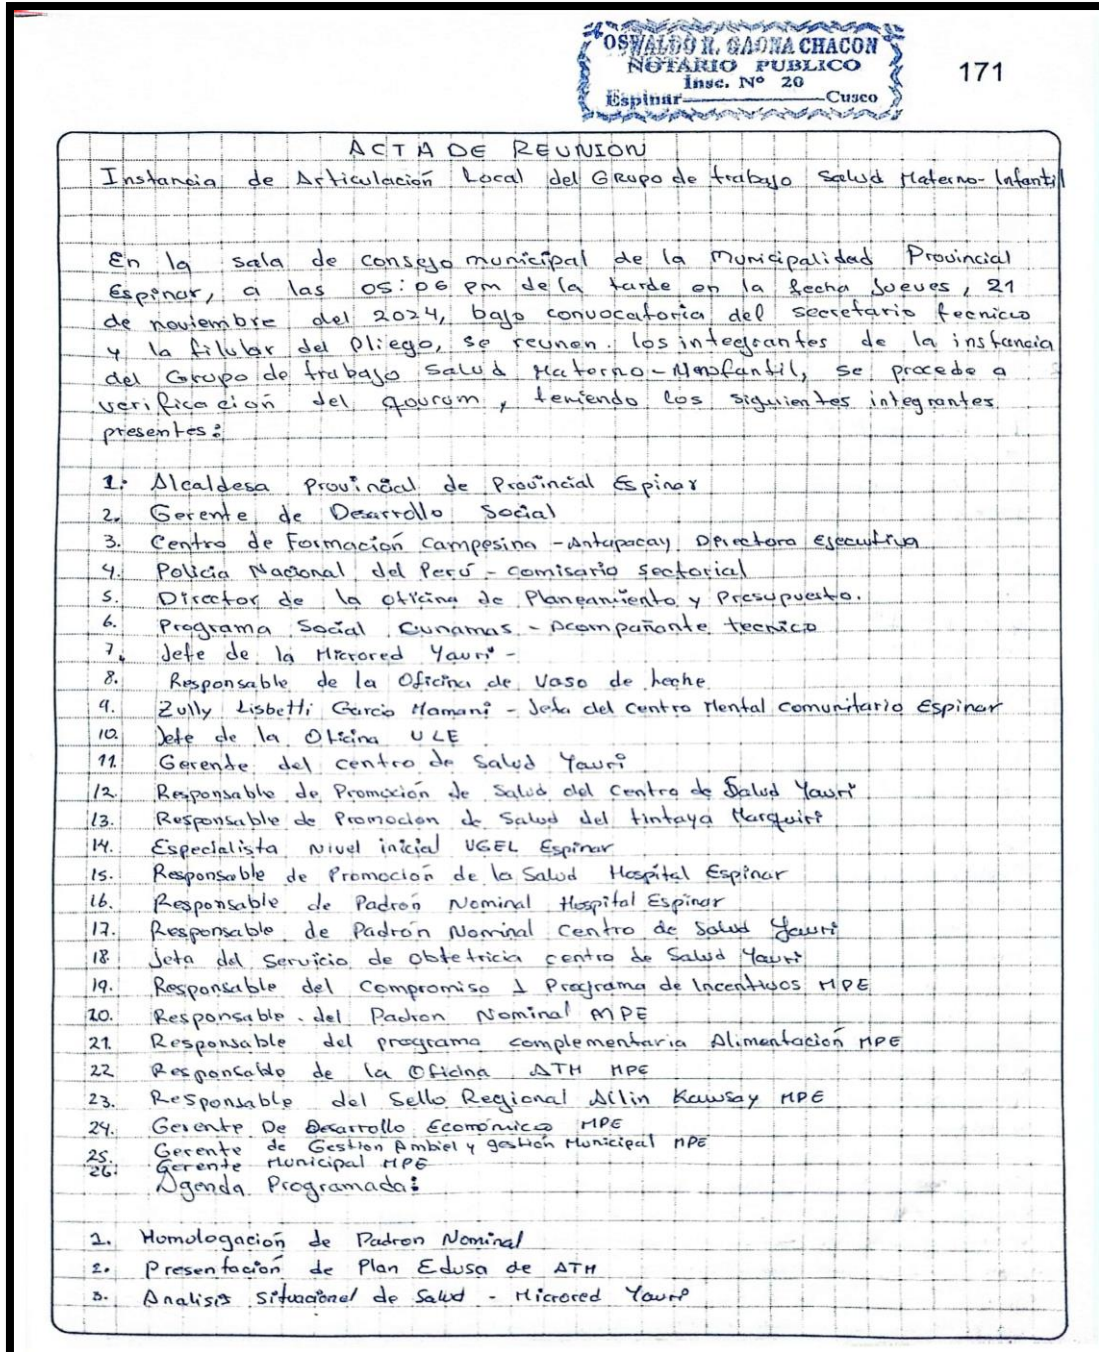 OSWALDO R. GAONA CHACON
NOTARIO PUBLICO
Insc. Nº 20
Espinar Cusco
171
ACTA DE REUNION
Instancia de Articulación Local del Grupo de trabajo Salud Materno-Infantil
En la sala de consejo municipal de la Municipalidad Provincial
Espinar, a las 05:06 pm de la tarde en la fecha Jueves, 21
de noviembre del 2024, bajo convocatoria del secretario tecnico
y la titular del pliego, se reunen los integrantes de la instancia
del Grupo de trabajo Salud Materno-Infantil, se procede a
verificacion del qourum, teniendo los siguientes integrantes
presentes:
1. Alcaldesa Provincial de Provincial Espinar
2. Gerente de Desarrollo Social
3. Centro de Formación Campesina - Antapacay Directora Ejecutiva
4. Policia Nacional del Perú - comisario sectorial
5. Director de la oficina de Planeamiento y Presupuesto.
6. Programa Social Cunamas - Acompañante tecnico
7. Jefe de la Microred Yauri -
8. Responsable de la Oficina de Vaso de leche
9. Zully Lisbetti Garcia Mamani - Jefa del Centro Mental Comunitario Espinar
10. Jefe de la Oficina ULE
11. Gerente del centro de Salud Yauri
12. Responsable de Promoción de Salud del Centro de Salud Yauri
13. Responsable de Promocion de Salud del tintaya Marquiri
14. Especialista Nivel inicial UGEL Espinar
15. Responsable de Promoción de la Salud Hospital Espinar
16. Responsable de Padrón Nominal Hospital Espinar
17. Responsable de Padrón Nominal Centro de Salud Yauri
18 Jefa del Servicio de obtetricia centro de Salud Yauri
19. Responsable del Compromiso 1 Programa de Incentivos MPE
20. Responsable del Padron Nominal MPE
21. Responsable del programa complementaria Alimentación MPE
22 Responsable de la Oficina ATM MPE
23. Responsable del Sello Regional Allin Kawsay MPE
24. Gerente De Desarrollo Económico MPE
25. Gerente de Gestion Ambiel y gestión Municipal MPE
26. Gerente Municipal MPE
Agenda Programada:
1. Homologación de Padron Nominal
2. Presentación de Plan Edusa de ATM
3. Analisis situacional de Salud - Microred Yauri